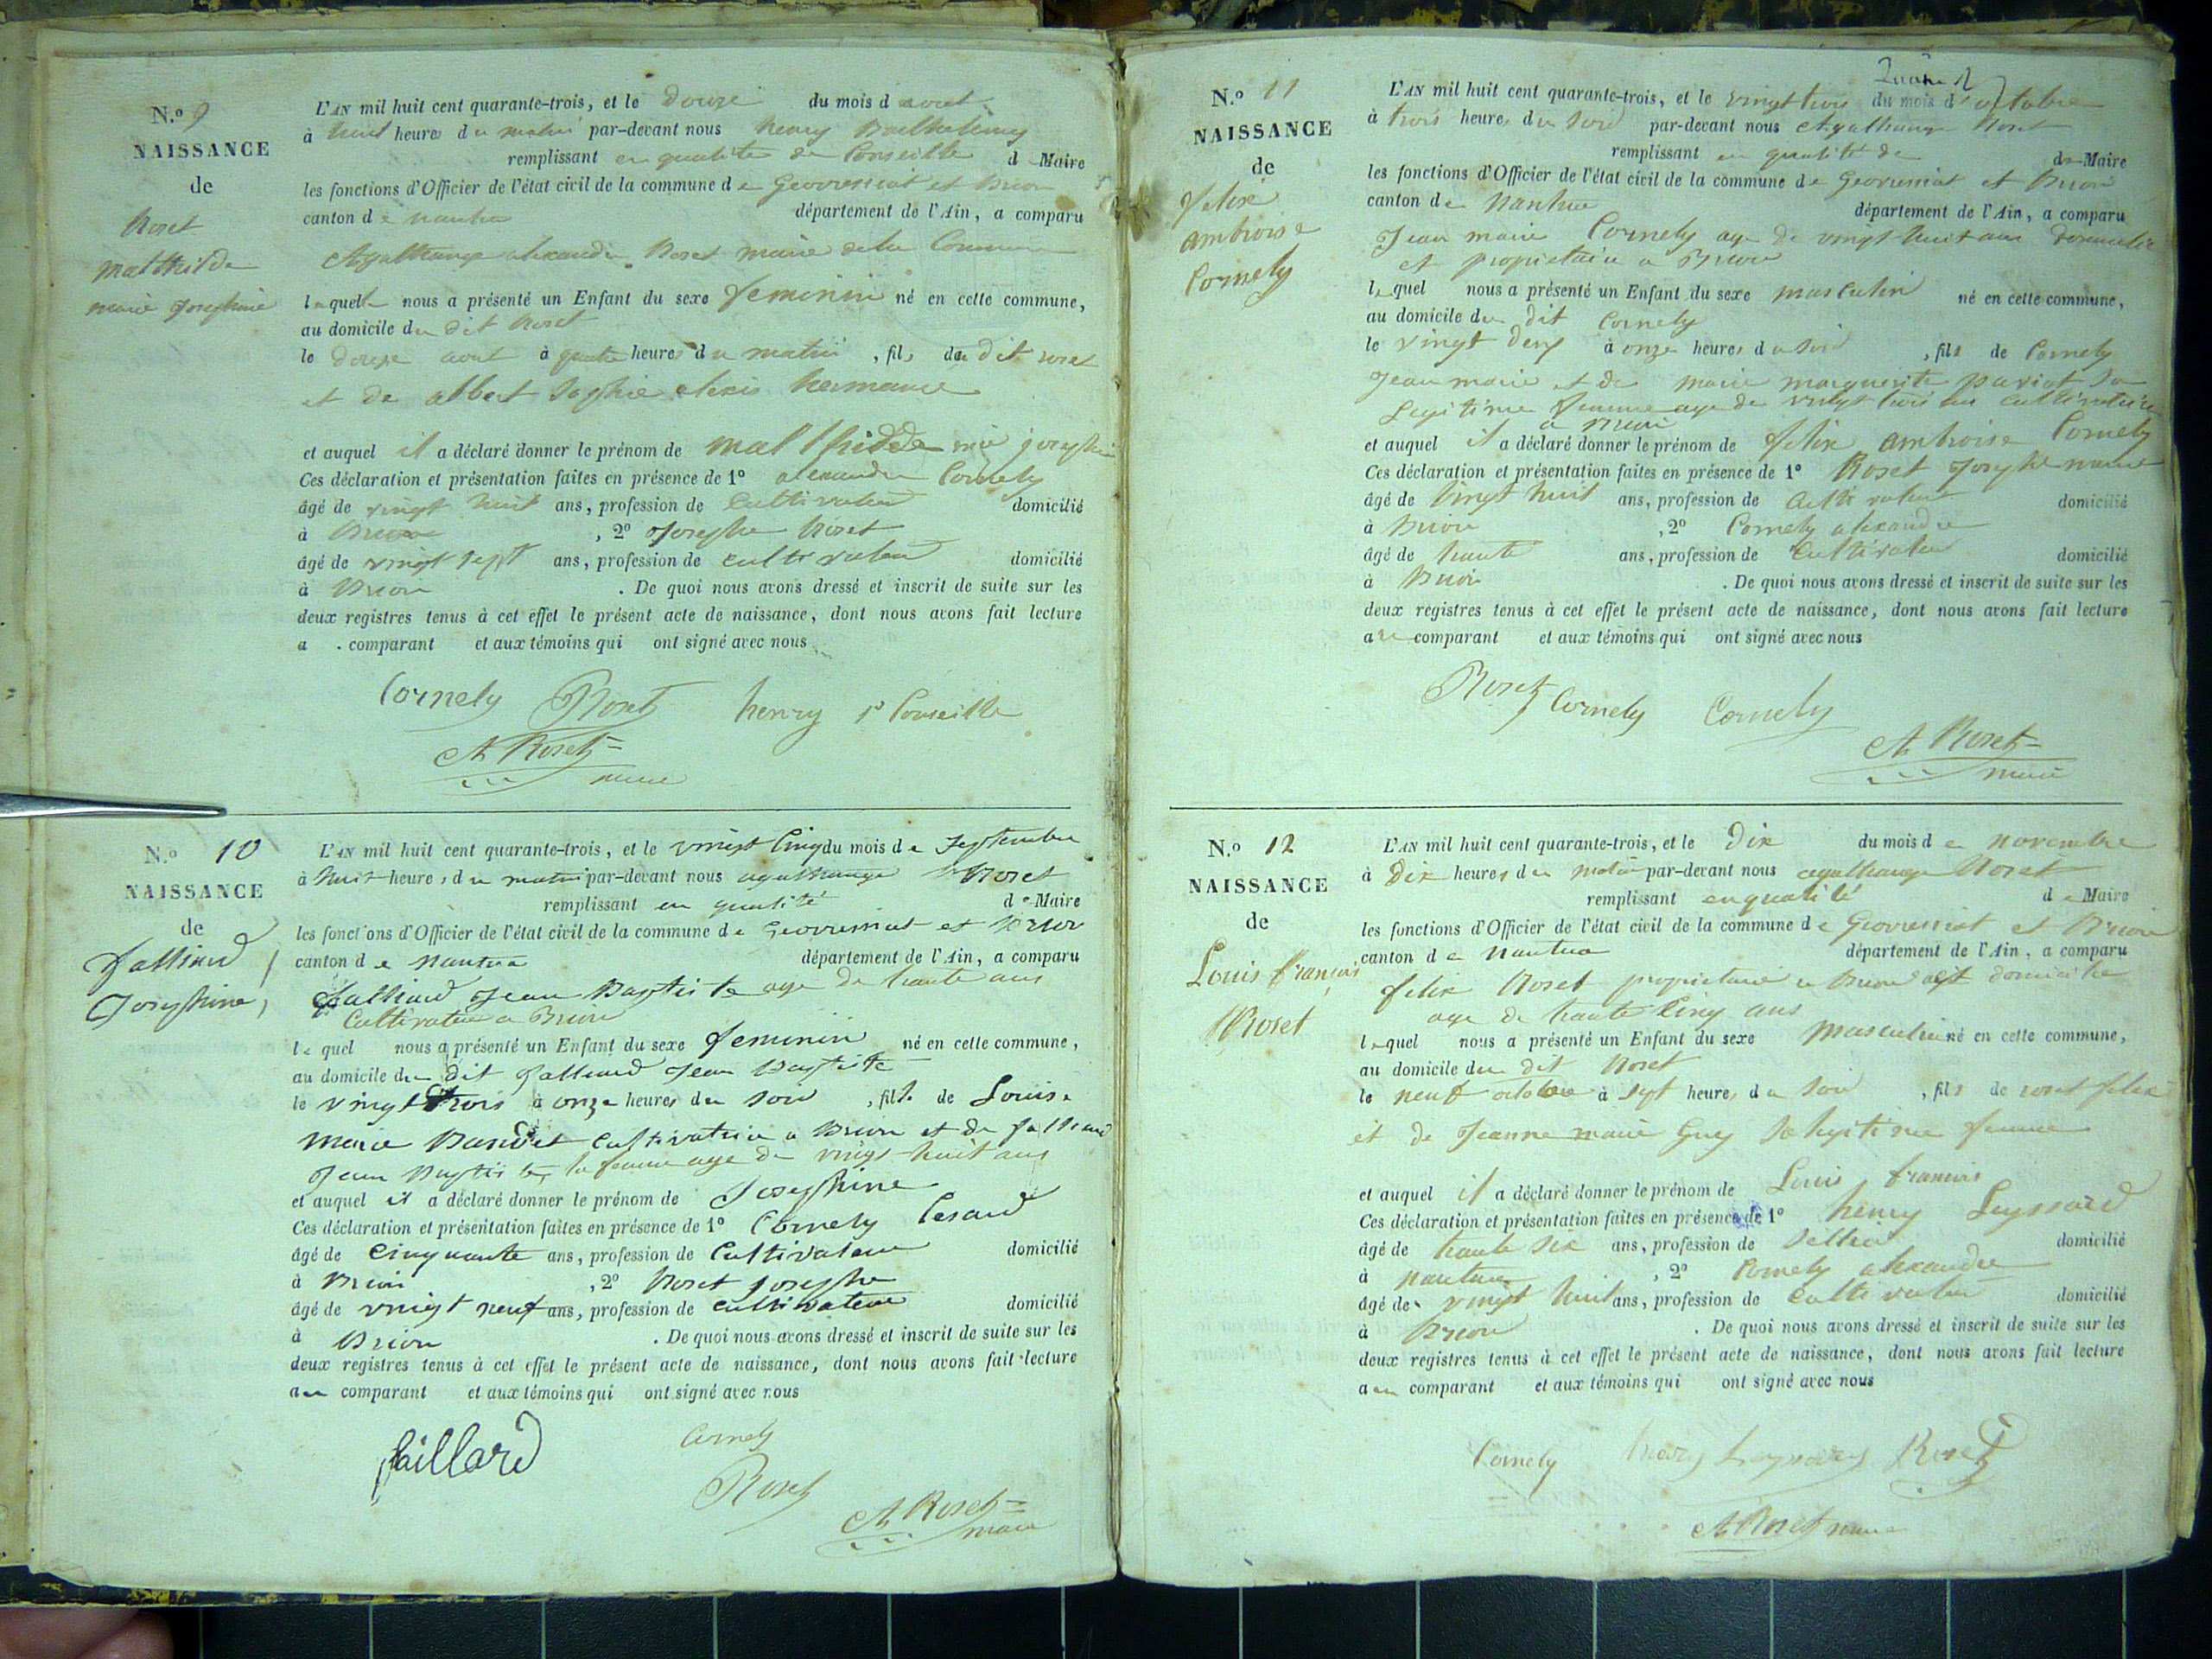 N.o 9
NAISSANCE
de
Roset
Matthilde
marie Josephine
L'AN mil huit cent quarante-trois, et le douze du mois d aout
à huit heures du matin par-devant nous henry Barthelemy
remplissant en qualité de Conseille d Maire
les fonctions d'Officier de l'état civil de la commune de Geovressiat et Brion
canton de nantua département de l'Ain, a comparu
Agathange alexandre Roset maire de la Commune
lequel nous a présenté un Enfant du sexe feminin né en cette commune,
au domicile du dit Roset
le douze aout à quatre heures du matin, fils du dit roset
et de albert Sophie alexis hermance
et auquel il a déclaré donner le prénom de mal thidde josephi
Ces déclaration et présentation faites en présence de 1o alexandre Cornely
âgé de vingt huit ans, profession de Cultivateur domicilié
à Brion, 2o Josephe Roset
âgé de vingt sept ans, profession de cultivateur domicilié
à Brion. De quoi nous avons dressé et inscrit de suite sur les
deux registres tenus à cet effet le présent acte de naissance, dont nous avons fait lecture
a comparant et aux témoins qui ont signé avec nous
Cornely Roset henry 1r Conseille
A Roset
maire
N.o 10
NAISSANCE
de
falliard
Josephine,
L'AN mil huit cent quarante-trois, et le vingt Cinq du mois de Septembre
à huit heures du matin par-devant nous agathange Roset
remplissant en qualité de Maire
les fonctions d'Officier de l'état civil de la commune de Geovressiat et Brion
canton de nantua département de l'Ain, a comparu
falliard Jean Baptiste age de trante ans
Cultivateur a Brion
lequel nous a présenté un Enfant du sexe feminin né en cette commune,
au domicile du dit falliard Jean Baptiste
le vingt trois à onze heures du soir, fils de Louise
marie Bandet Cultivatrice a Brion et de falliard
Jean Baptiste, la femme age de vingt huit ans
et auquel il a déclaré donner le prénom de Josephine
Ces déclaration et présentation faites en présence de 1o Cornely Cesard
âgé de cinquante ans, profession de Cultivateur domicilié
à Brion, 2o Roset Josephe
âgé de vingt neuf ans, profession de cultivateur domicilié
à Brion. De quoi nous avons dressé et inscrit de suite sur les
deux registres tenus à cet effet le présent acte de naissance, dont nous avons fait lecture
au comparant et aux témoins qui ont signé avec nous
faillard Cornely
Roset
A Roset
maire
N.o 11
NAISSANCE
de
felix
ambroise
Cornely
L'AN mil huit cent quarante-trois, et le vingt trois du mois d'octobre
à trois heures du soir par-devant nous Agathange Roset
remplissant en qualité de de Maire
les fonctions d'Officier de l'état civil de la commune de Geovressiat et Brion
canton de Nantua département de l'Ain, a comparu
Jean marie Cornely age de vingt huit ans Domicilie
et propriétaire a Brion
lequel nous a présenté un Enfant du sexe masculin né en cette commune,
au domicile du dit Cornely
le vingt deux à onze heures du soir, fils de Cornely
Jean marie et de marie marguerite pariat sa
Legitime femme age de vingt trois ans cultivatrice
a Brion
et auquel il a déclaré donner le prénom de felix ambroise Cornely
Ces déclaration et présentation faites en présence de 1o Roset Josephe marie
âgé de vingt huit ans, profession de Cultivateur domicilié
à Brion, 2o Cornely alexandre
âgé de trante ans, profession de Cultivateur domicilié
à Brion. De quoi nous avons dressé et inscrit de suite sur les
deux registres tenus à cet effet le présent acte de naissance, dont nous avons fait lecture
a comparant et aux témoins qui ont signé avec nous
Roset Cornely Cornely
A Roset
maire
N.o 12
NAISSANCE
de
Louis françois
Roset
L'AN mil huit cent quarante-trois, et le Dix du mois de novembre
à Dix heures du matin par-devant nous agathange Roset
remplissant en qualité de Maire
les fonctions d'Officier de l'état civil de la commune de Geovressiat et Brion
canton de Nantua département de l'Ain, a comparu
felix Roset propriétaire a Brion domicilie
age de trante Cinq ans
lequel nous a présenté un Enfant du sexe masculin né en cette commune,
au domicile du dit Roset
le neuf octobre à sept heures du soir, fils de roset felix
et de Jeanne marie Guy legitime femme
et auquel il a déclaré donner le prénom de Louis francois
Ces déclaration et présentation faites en présence de 1o henry Leyssard
âgé de trante six ans, profession de sellier domicilié
à nantua, 2o Cornely alexandre
âgé de vingt huit ans, profession de Cultivateur domicilié
à Brion. De quoi nous avons dressé et inscrit de suite sur les
deux registres tenus à cet effet le présent acte de naissance, dont nous avons fait lecture
au comparant et aux témoins qui ont signé avec nous
Cornely henry Leyssard Roset
A Roset maire